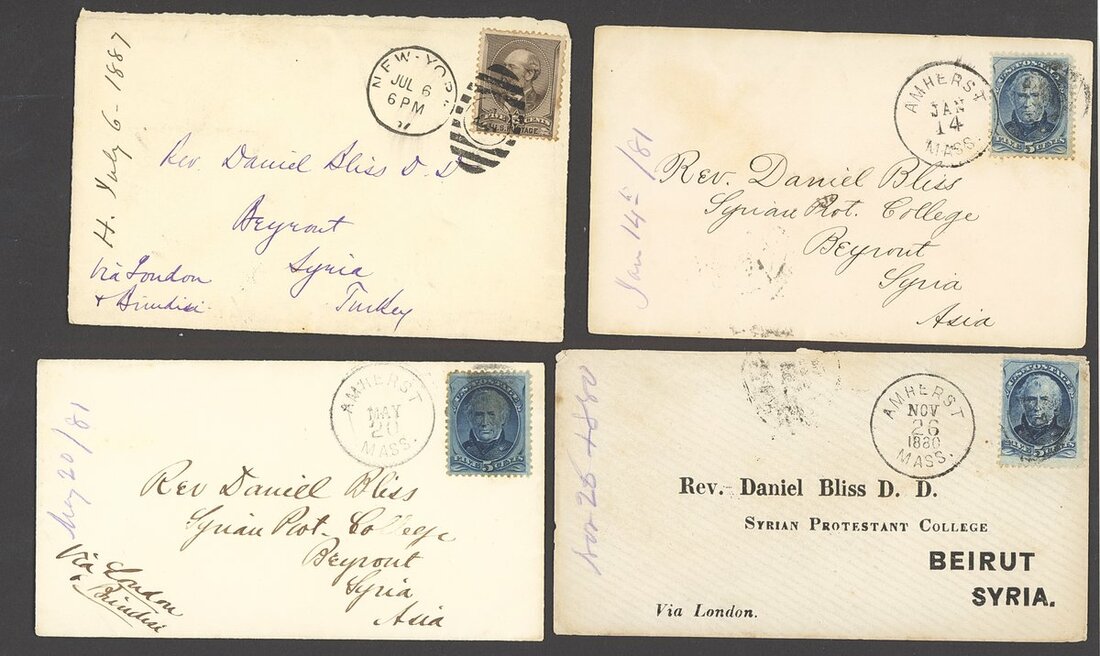 H. July 6 - 1887
NEW-YORK
JUL 6
6 PM
Rev. Daniel Bliss D. D
Beyrout
Syria
Turkey
Via London
+ Brindisi
Jan 14th/81
AMHERST
JAN
14
MASS.
5
Rev. Daniel Bliss
Syrian Prot. College
Beyrout
Syria
Asia
May 20/81
AMHERST
MAY
20
MASS.
5
Rev Daniel Bliss
Syrian Prot. College
Beyrout
Syria
Asia
Via London
Brindisi
Nov 26 1880
AMHERST
NOV
26
1880
MASS.
5
Rev. Daniel Bliss D. D.
SYRIAN PROTESTANT COLLEGE
BEIRUT
SYRIA.
Via London.